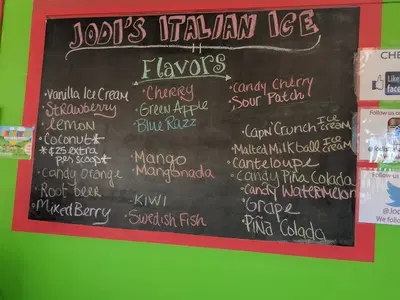 JODI'S ITALIAN ICE
Flavors
Vanilla Ice Cream
Strawberry
Lemon
Coconut*
*¢25 extra
per scoop*
Candy Orange
Root beer
Mixed Berry
Cherry
Green Apple
Blue Razz
Mango
Mangonada
Kiwi
Swedish Fish
Candy Cherry
Sour Patch
Capn' Crunch ICE CREAM
Malted Milk ball ICE CREAM
Canteloupe
Candy Piña Colada
Candy Watermelon
Grape
Piña Colada
CHE
Like
faceb
Follow us o
Follow us
@Jodi
We follo